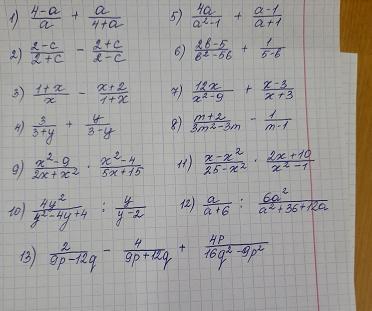 1) (4-a)/a + a/(4+a)
5) 4a/(a²-1) + (a-1)/(a+1)
2) (2-c)/(2+c) - (2+c)/(2-c)
6) (2b-5)/(b²-5b) + 1/(5-b)
3) (1+x)/x - (x+2)/(1+x)
7) 12x/(x²-9) + (x-3)/(x+3)
4) 3/(3+y) + y/(3-y)
8) (m+2)/(3m²-3m) - 1/(m-1)
9) (x²-9)/(2x+x²) · (x²-4)/(5x+15)
11) (x-x²)/(25-x²) · (2x+10)/(x²-1)
10) 4y²/(y²-4y+4) : y/(y-2)
12) a/(a+6) : 6a²/(a²+36+12a)
13) 2/(9p-12q) - 4/(9p+12q) + 4p/(16q²-9p²)